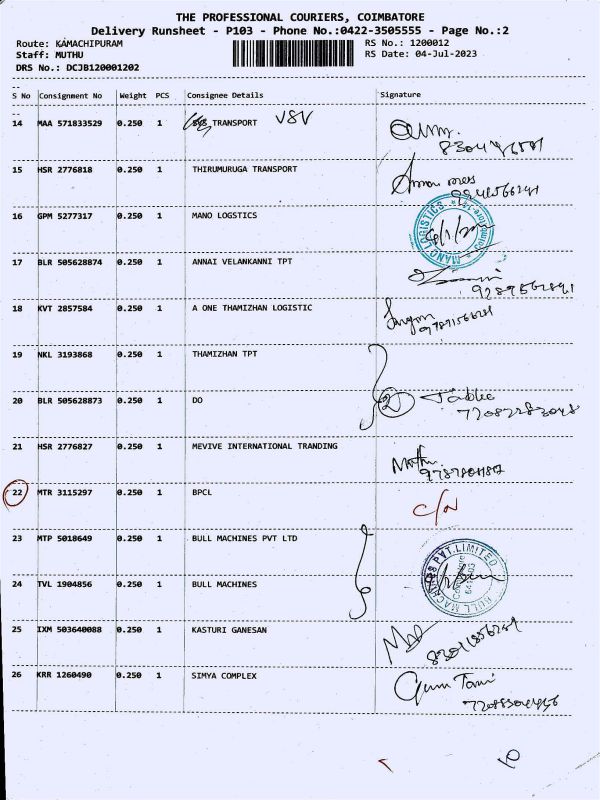 THE PROFESSIONAL COURIERS, COIMBATORE
Delivery Runsheet - P103 - Phone No.:0422-3505555 - Page No.:2
Route: KAMACHIPURAM RS No.: 1200012
Staff: MUTHU RS Date: 04-Jul-2023
DRS No.: DCJB120001202
S No Consignment No Weight PCS Consignee Details Signature
14 MAA 571833529 0.250 1 TRANSPORT VSV
15 HSR 2776818 0.250 1 THIRUMURUGA TRANSPORT
16 GPM 5277317 0.250 1 MANO LOGSTICS
MANO LOGISTICS
17 BLR 505628874 0.250 1 ANNAI VELANKANNI TPT
18 KVT 2857584 0.250 1 A ONE THAMIZHAN LOGISTIC
19 NKL 3193868 0.250 1 THAMIZHAN TPT
20 BLR 505628873 0.250 1 DO 2
21 HSR 2776827 0.250 1 MEVIVE INTERNATIONAL TRANDING
22 MTR 3115297 0.250 1 BPCL
23 MTP 5018649 0.250 1 BULL MACHINES PVT LTD
BULL MACHINES PVT.LIMITED
24 TVL 1904856 0.250 1 BULL MACHINES
25 IXM 503640088 0.250 1 KASTURI GANESAN
26 KRR 1260490 0.250 1 SIMYA COMPLEX